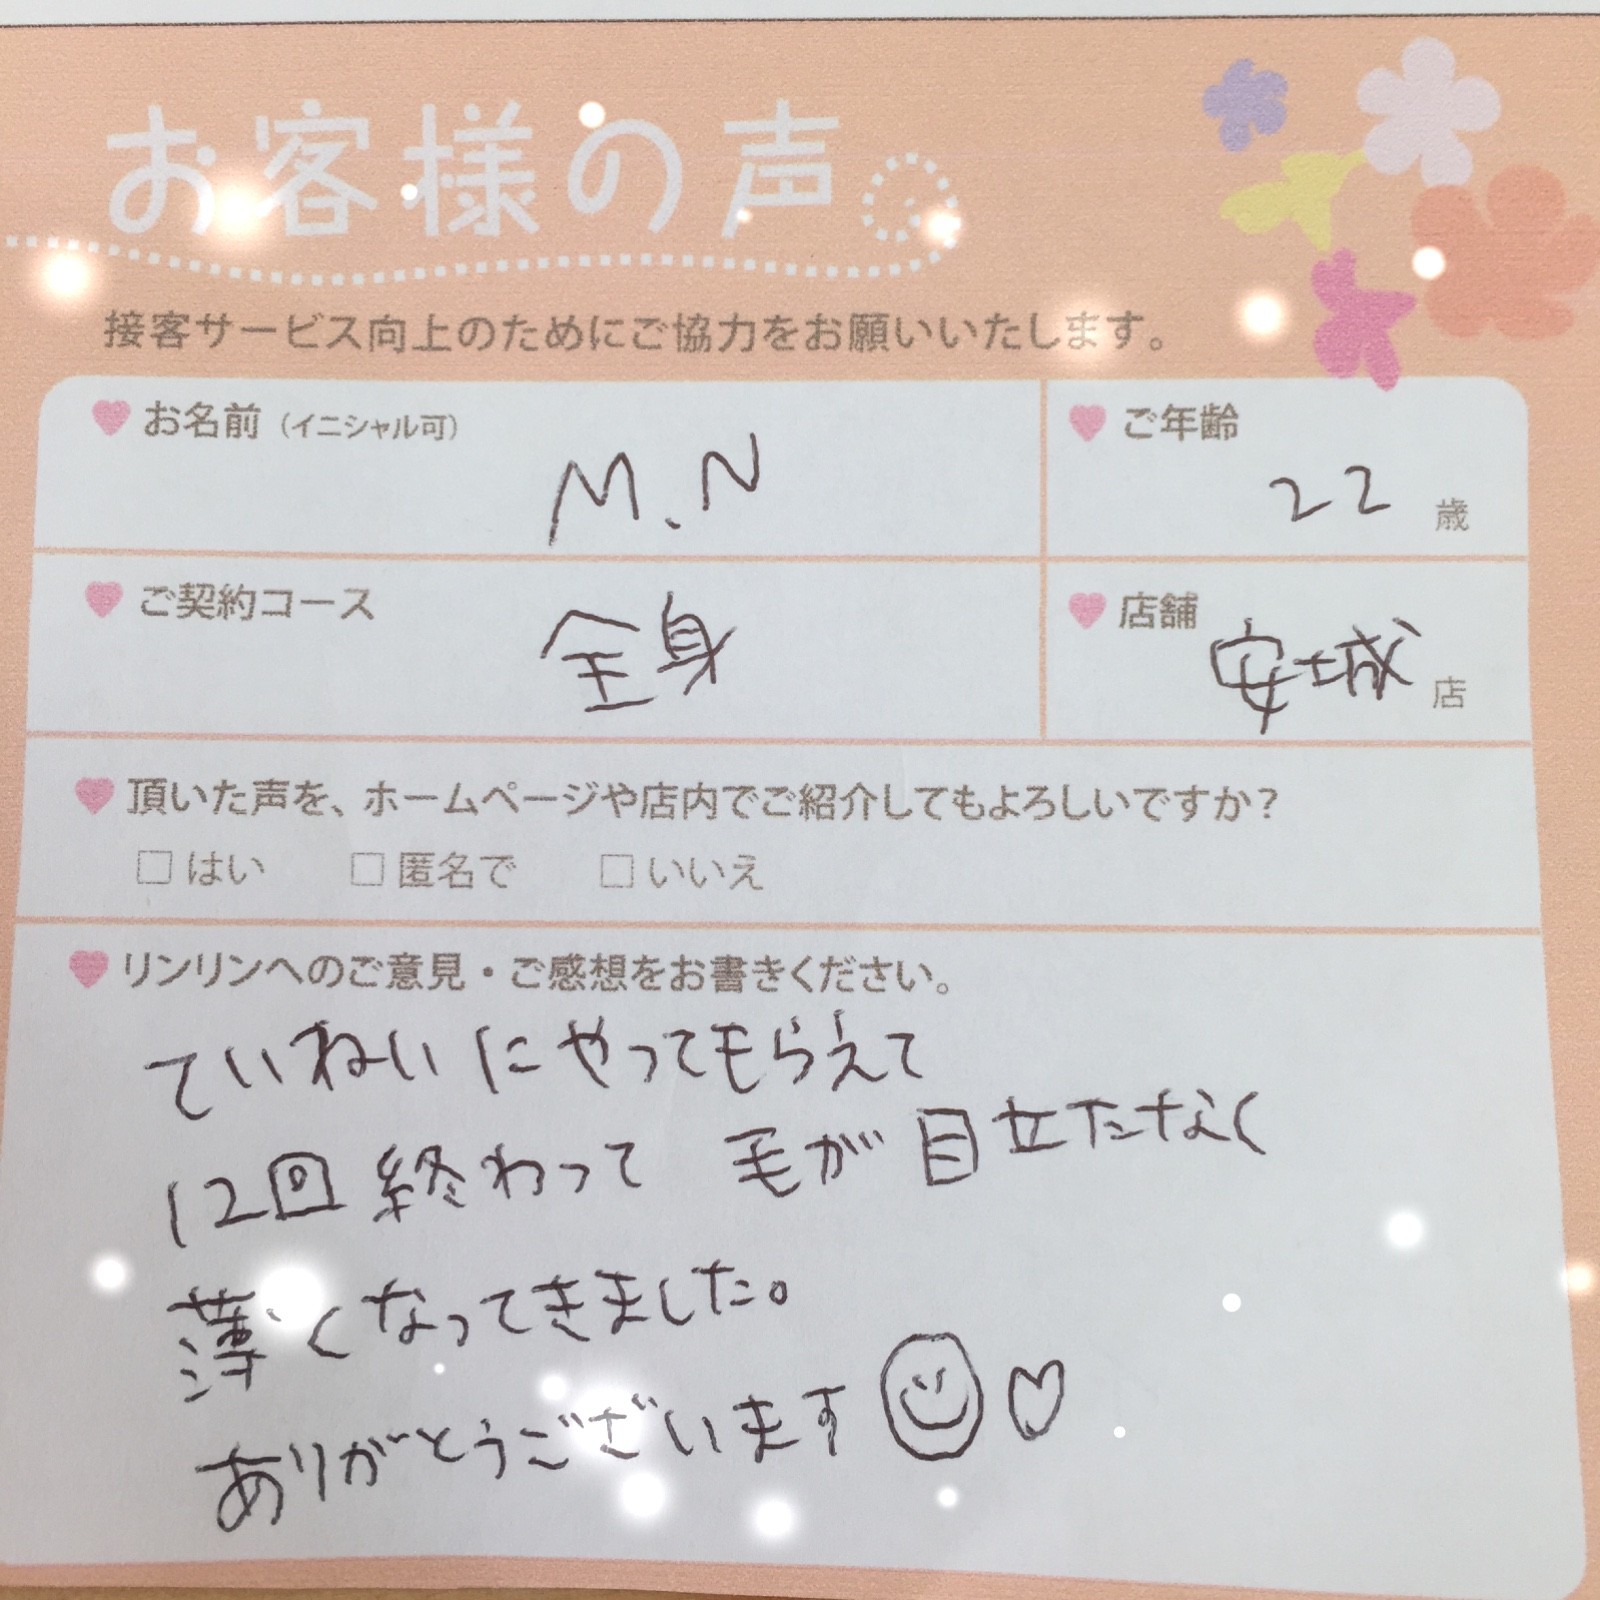 お客様の声。
接客サービス向上のためにご協力をお願いいたします。
お名前（イニシャル可）
M.N
ご年齢
22歳
ご契約コース
全身
店舗
安城店
頂いた声を、ホームページや店内でご紹介してもよろしいですか？
□はい □匿名で □いいえ
リンリンへのご意見・ご感想をお書きください。
ていねいにやってもらえて
12回終わって 毛が目立たなく
薄くなってきました。
ありがとうございます